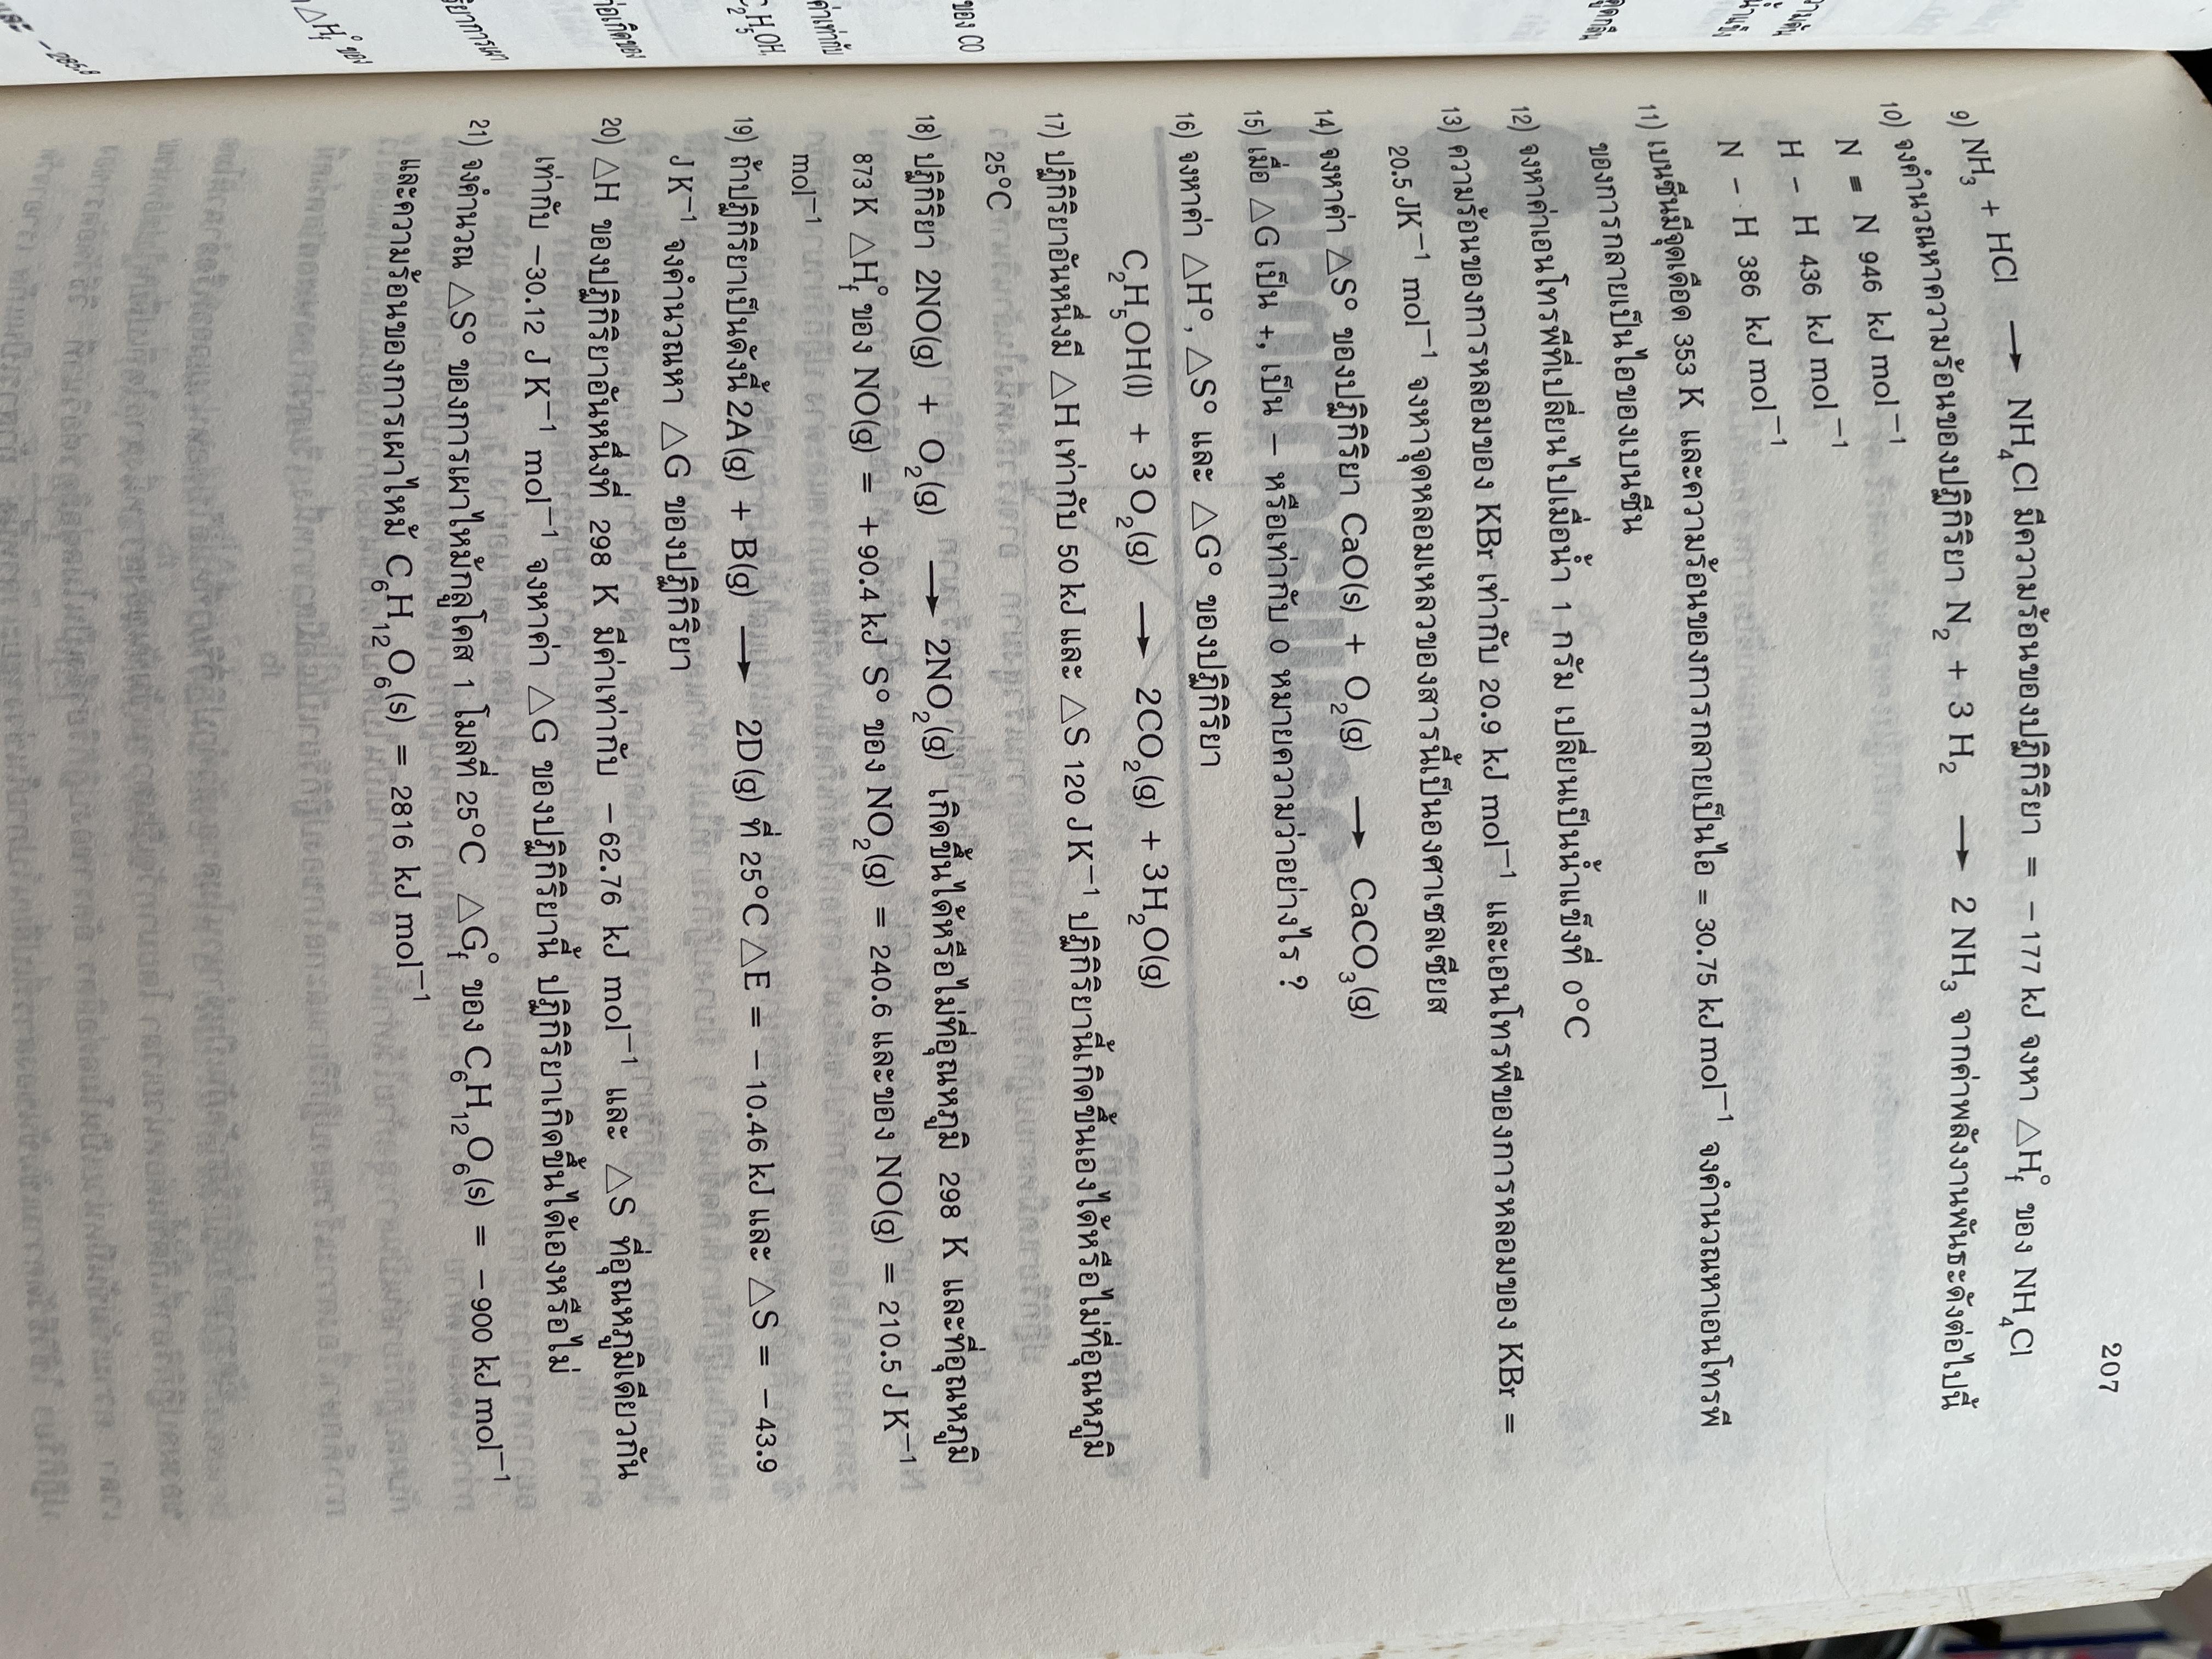 207
9) NH₃ + HCl → NH₄Cl มีความร้อนของปฏิกิริยา = −177 kJ จงหา △Hf° ของ NH₄Cl
10) จงคำนวณหาความร้อนของปฏิกิริยา N₂ + 3 H₂ → 2 NH₃ จากค่าพลังงานพันธะดังต่อไปนี้
N ≡ N 946 kJ mol⁻¹
H − H 436 kJ mol⁻¹
N − H 386 kJ mol⁻¹
11) เบนซีนมีจุดเดือด 353 K และความร้อนของการกลายเป็นไอ = 30.75 kJ mol⁻¹ จงคำนวณหาเอนโทรพี
ของการกลายเป็นไอของเบนซีน
12) จงหาค่าเอนโทรพีที่เปลี่ยนไปเมื่อน้ำ 1 กรัม เปลี่ยนเป็นน้ำแข็งที่ 0°C
13) ความร้อนของการหลอมของ KBr เท่ากับ 20.9 kJ mol⁻¹ และเอนโทรพีของการหลอมของ KBr =
20.5 JK⁻¹ mol⁻¹ จงหาจุดหลอมเหลวของสารนี้เป็นองศาเซลเซียส
14) จงหาค่า △S° ของปฏิกิริยา CaO(s) + O₂(g) → CaCO₃(g)
15) เมื่อ △G เป็น +, เป็น − หรือเท่ากับ 0 หมายความว่าอย่างไร ?
16) จงหาค่า △H°, △S° และ △G° ของปฏิกิริยา
C₂H₅OH(l) + 3O₂(g) → 2CO₂(g) + 3H₂O(g)
17) ปฏิกิริยาอันหนึ่งมี △H เท่ากับ 50 kJ และ △S 120 JK⁻¹ ปฏิกิริยานี้เกิดขึ้นเองได้หรือไม่ที่อุณหภูมิ
25°C
18) ปฏิกิริยา 2NO(g) + O₂(g) → 2NO₂(g) เกิดขึ้นได้หรือไม่ที่อุณหภูมิ 298 K และที่อุณหภูมิ
873 K △Hf° ของ NO(g) = +90.4 kJ S° ของ NO₂(g) = 240.6 และของ NO(g) = 210.5 J K⁻¹
mol⁻¹
19) ถ้าปฏิกิริยาเป็นดังนี้ 2A(g) + B(g) → 2D(g) ที่ 25°C △E = −10.46 kJ และ △S = −43.9
JK⁻¹ จงคำนวณหา △G ของปฏิกิริยา
20) △H ของปฏิกิริยาอันหนึ่งที่ 298 K มีค่าเท่ากับ −62.76 kJ mol⁻¹ และ △S ที่อุณหภูมิเดียวกัน
เท่ากับ −30.12 J K⁻¹ mol⁻¹ จงหาค่า △G ของปฏิกิริยานี้ ปฏิกิริยาเกิดขึ้นได้เองหรือไม่
21) จงคำนวณ △S° ของการเผาไหม้กลูโคส 1 โมลที่ 25°C △Gf° ของ C₆H₁₂O₆(s) = −900 kJ mol⁻¹
และความร้อนของการเผาไหม้ C₆H₁₂O₆(s) = 2816 kJ mol⁻¹
ของ CO
ค่าเท่ากับ
C₂H₅OH,
△Hf° ของ
−285.8